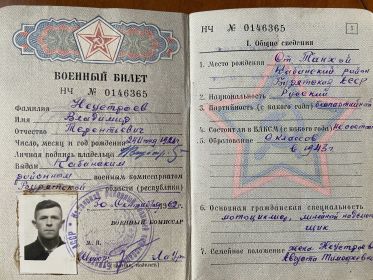 ВОЕННЫЙ БИЛЕТ
НЧ № 0146365
Фамилия Неустроев
Имя Владимир
Отчество Терентьевич
Число, месяц и год рождения
Личная подпись владельца
Выдан Кабанским
районным военным комиссариатом
Бурятской области (республики)
1962 г.
ВОЕННЫЙ КОМИССАР
М. П.
НЧ № 0146365
1
I. Общие сведения
1. Место рождения Ст Танхой
Кабанский район
Бурятской АССР
2. Национальность Русский
3. Партийность (с какого года) беспартийный
4. Состоит ли в ВЛКСМ (с какого года) не состоит
5. Образование классов
в 1943 г.
6. Основная гражданская специальность
7. Семейное положение жена Неустроева
Августа Тимофеевна